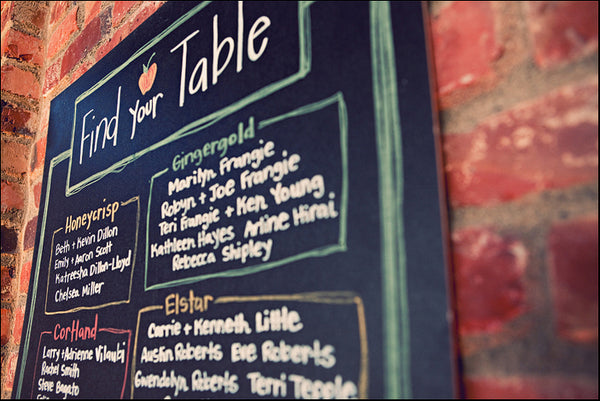 Find your Table
Gingergold
Marilyn Frangie
Robyn + Joe Frangie
Teri Frangie + Ken Young
Kathleen Hayes Arline Hirai
Rebecca Shipley
Honeycrisp
Beth + Kevin Dillon
Emily + Aaron Scott
Katreesha Dillon-Lloyd
Chelsea Miller
Elstar
Carrie + Kenneth Little
Austin Roberts Eve Roberts
Gwendolyn Roberts Terri Temple
Cortland
Larry + Adrienne Vilaubi
Rachel Smith
Steve Bagato